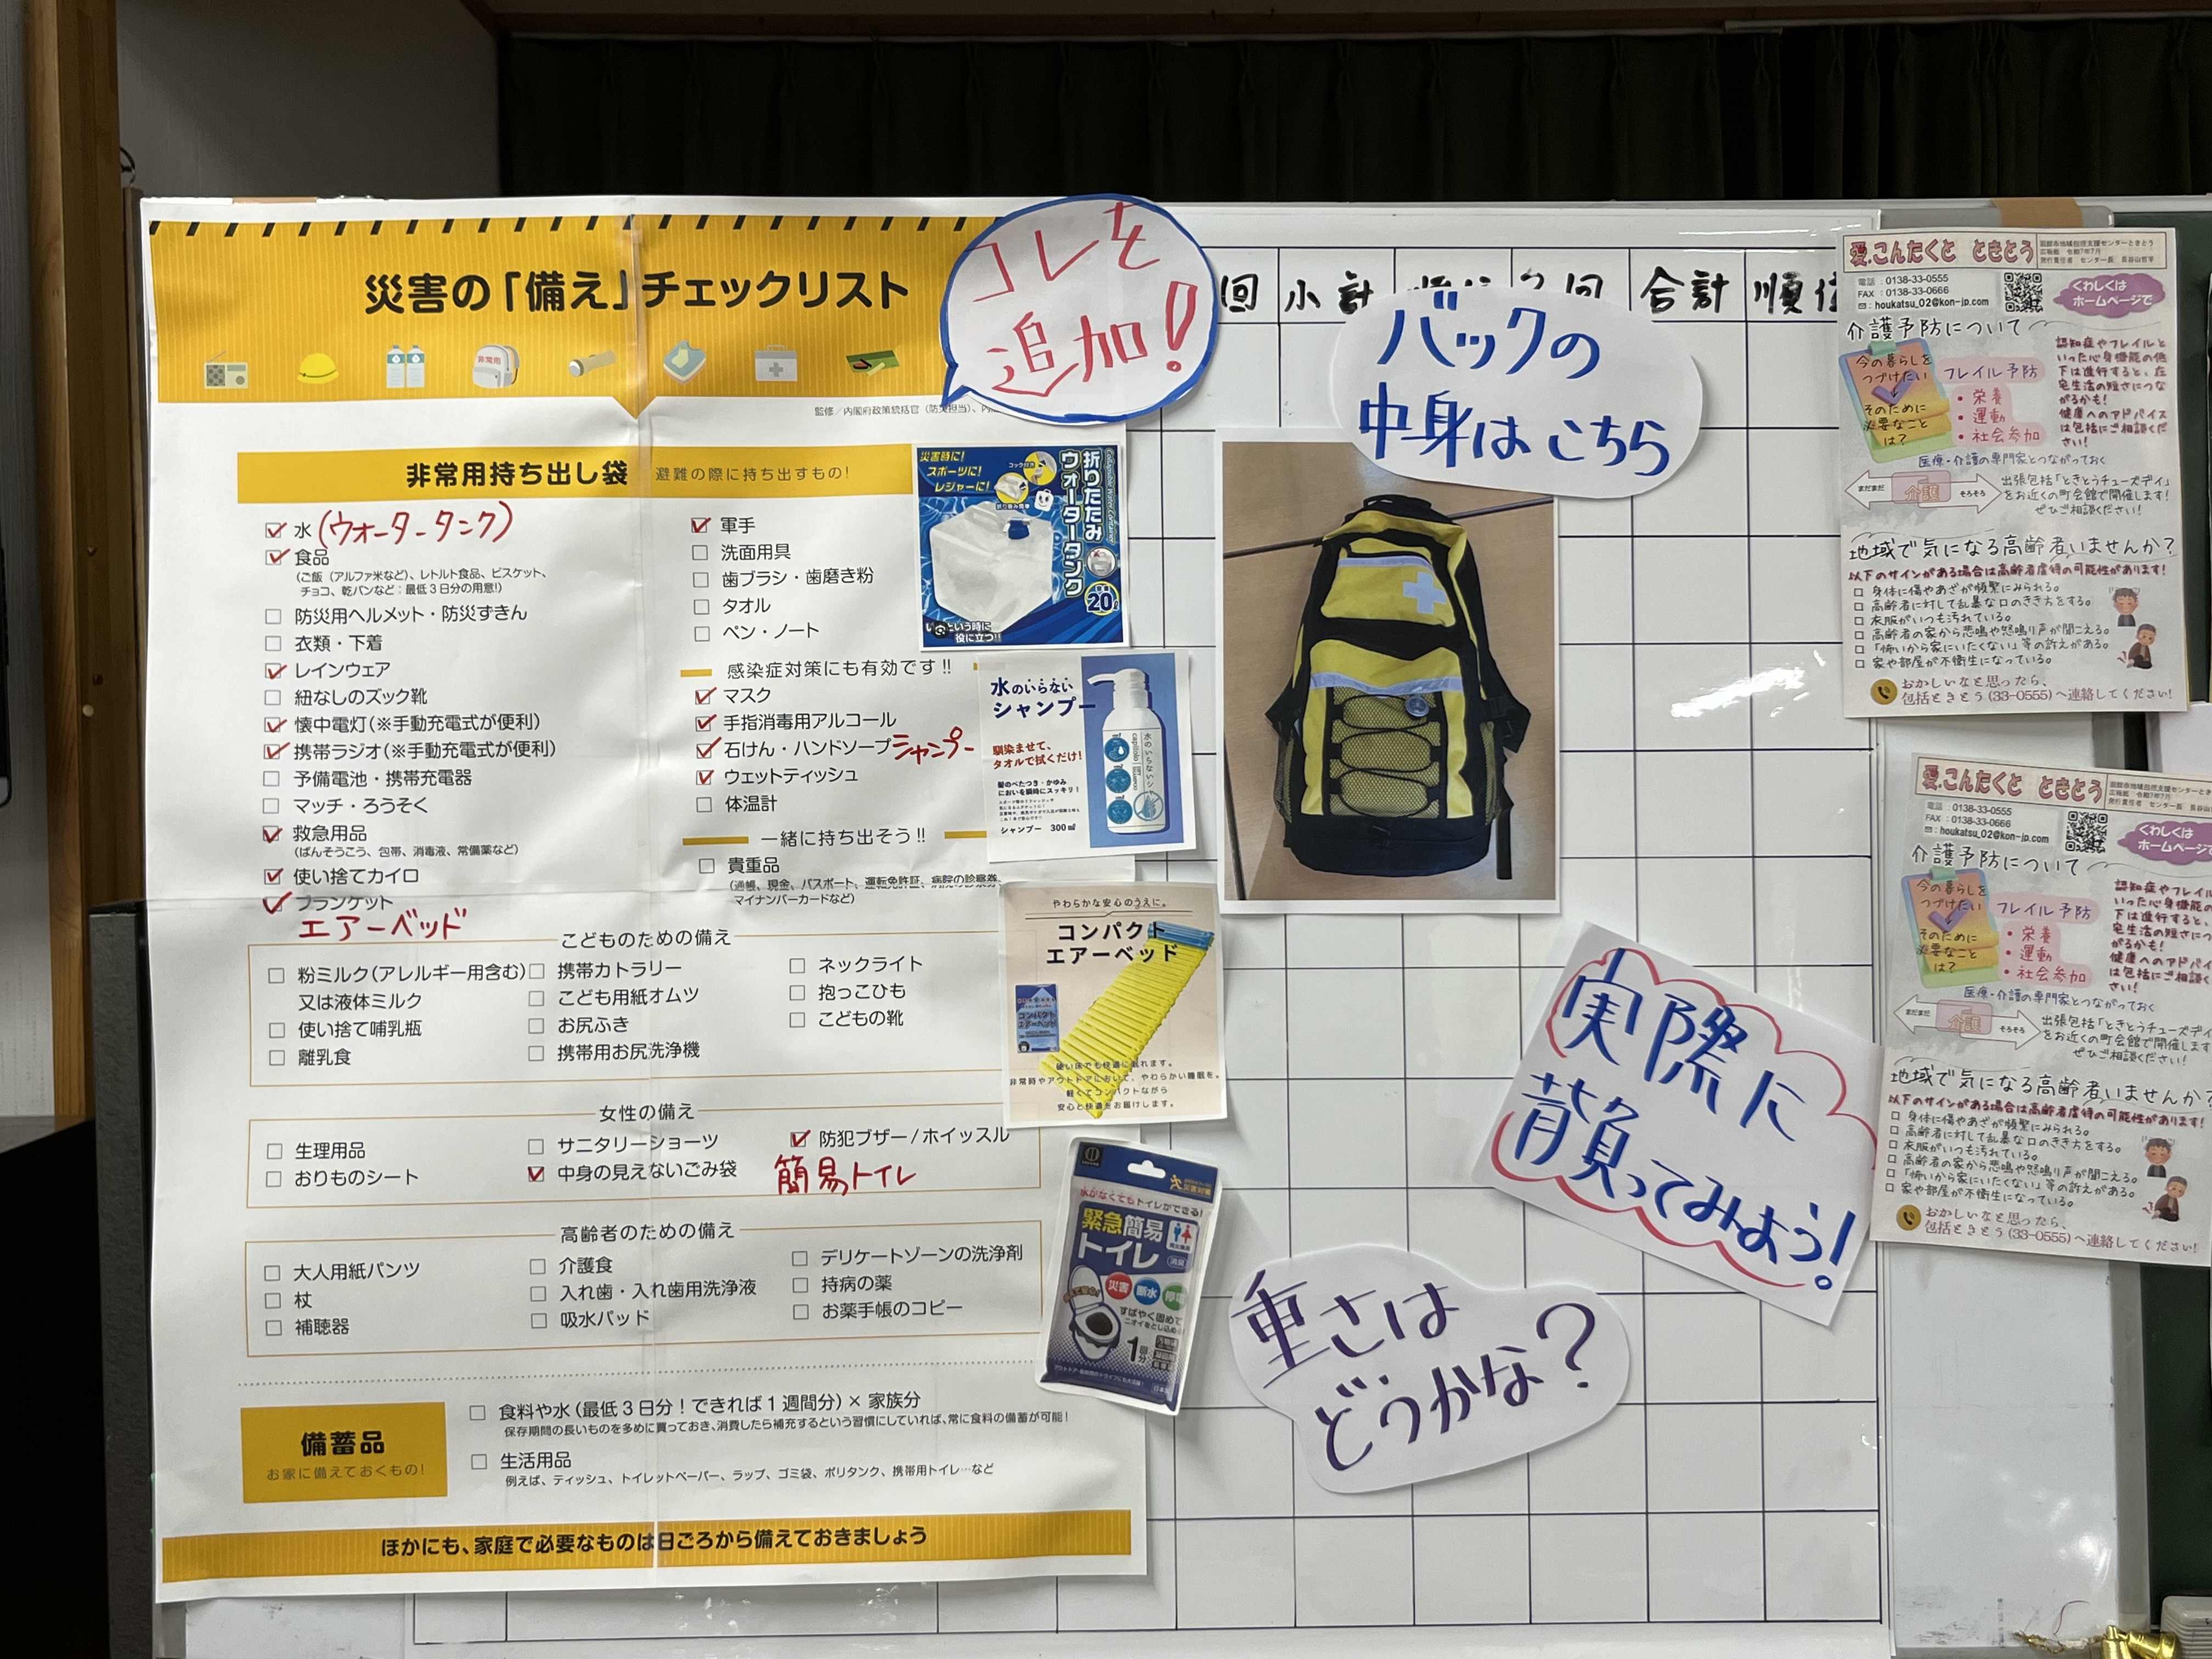 災害の「備え」チェックリスト
監修／内閣府政策統括官（防災担当）、内
コレを
追加！
非常用持ち出し袋 避難の際に持ち出すもの!
水（ウォータータンク）
食品
(ご飯（アルファ米など）、レトルト食品、ビスケット、
チョコ、乾パンなど：最低3日分の用意!)
防災用ヘルメット・防災ずきん
衣類・下着
レインウェア
紐なしのズック靴
懐中電灯(※手動充電式が便利)
携帯ラジオ(※手動充電式が便利)
予備電池・携帯充電器
マッチ・ろうそく
救急用品
(ばんそうこう、包帯、消毒液、常備薬など)
使い捨てカイロ
ブランケット
エアーベッド
軍手
洗面用具
歯ブラシ・歯磨き粉
タオル
ペン・ノート
感染症対策にも有効です!!
マスク
手指消毒用アルコール
石けん・ハンドソープ シャンプー
ウェットティッシュ
体温計
一緒に持ち出そう!!
貴重品
(通帳、現金、パスポート、運転免許証、病院の診察券、
マイナンバーカードなど)
こどものための備え
粉ミルク(アレルギー用含む)
又は液体ミルク
使い捨て哺乳瓶
離乳食
携帯カトラリー
こども用紙オムツ
お尻ふき
携帯用お尻洗浄機
ネックライト
抱っこひも
こどもの靴
女性の備え
生理用品
おりものシート
サニタリーショーツ
中身の見えないごみ袋
防犯ブザー/ホイッスル
簡易トイレ
高齢者のための備え
大人用紙パンツ
杖
補聴器
介護食
入れ歯・入れ歯用洗浄液
吸水パッド
デリケートゾーンの洗浄剤
持病の薬
お薬手帳のコピー
備蓄品
お家に備えておくもの!
食料や水(最低3日分！できれば1週間分)×家族分
保存期間の長いものを多めに買っておき、消費したら補充するという習慣にしていれば、常に食料の備蓄が可能!
生活用品
例えば、ティッシュ、トイレットペーパー、ラップ、ゴミ袋、ポリタンク、携帯用トイレ…など
ほかにも、家庭で必要なものは日ごろから備えておきましょう
災害時に!
スポーツに!
レジャーに!
折りたたみ
ウォータータンク
20
という時に
役に立つ!!
水のいらない
シャンプー
馴染ませて、
タオルで拭くだけ!
髪のべたつき・かゆみ
においを瞬時にスッキリ!
シャンプー 300ml
やわらかな安心のうえに。
コンパクト
エアーベッド
硬い床でも快適に眠れます。
非常時やアウトドアにおいて、やわらかい睡眠を。
軽くてコンパクトながら
安心と快適をお届けします。
水がなくてもトイレができる!
緊急簡易
トイレ
災害 断水 停電
すばやく固めて
ニオイをとじ込める
1回分
回 小計 2回 合計 順位
バックの
中身は こちら
実際に
背負ってみよう!
重さは
どうかな?
愛.こんたくと ときとう
函館市地域包括支援センターときとう
広報紙 令和7年7月
発行責任者 センター長 長谷山哲平
電話：0138-33-0555
FAX：0138-33-0666
houkatsu_02@kon-jp.com
くわしくは
ホームページで
介護予防について
今の暮らしを
つづけたい
そのために
必要なこと
は?
フレイル予防
・栄養
・運動
・社会参加
認知症やフレイルと
いった心身機能の低
下は進行すると、在
宅生活の短さにつな
がるかも!
健康へのアドバイス
は包括にご相談くだ
さい!
医療・介護の専門家とつながっておく
まだまだ 介護 そろそろ
出張包括「ときとうチューズデイ」
をお近くの町会館で開催します!
ぜひご相談ください!
地域で気になる高齢者いませんか?
以下のサインがある場合は高齢者虐待の可能性があります!
身体に傷やあざが頻繁にみられる。
高齢者に対して乱暴な口のきき方をする。
衣服がいつも汚れている。
高齢者の家から悲鳴や怒鳴り声が聞こえる。
「怖いから家にいたくない」等の訴えがある。
家や部屋が不衛生になっている。
おかしいなと思ったら、
包括ときとう(33-0555)へ連絡してください!
愛.こんたくと ときとう
電話：0138-33-0555
FAX：0138-33-0666
houkatsu_02@kon-jp.com
くわしくは
ホームページで
介護予防について
今の暮らしを
つづけたい
そのために
必要なこと
は?
フレイル予防
・栄養
・運動
・社会参加
認知症やフレイル
いった心身機能の
下は進行すると、
宅生活の短さにつ
がるかも!
健康へのアドバイ
は包括にご相談く
さい!
医療・介護の専門家とつながっておく
まだまだ 介護 そろそろ
出張包括「ときとうチューズデイ
をお近くの町会館で開催します
ぜひご相談ください!
地域で気になる高齢者いませんか?
以下のサインがある場合は高齢者虐待の可能性があります!
身体に傷やあざが頻繁にみられる。
高齢者に対して乱暴な口のきき方をする。
衣服がいつも汚れている。
高齢者の家から悲鳴や怒鳴り声が聞こえる。
「怖いから家にいたくない」等の訴えがある。
家や部屋が不衛生になっている。
おかしいなと思ったら、
包括ときとう(33-0555)へ連絡してください!